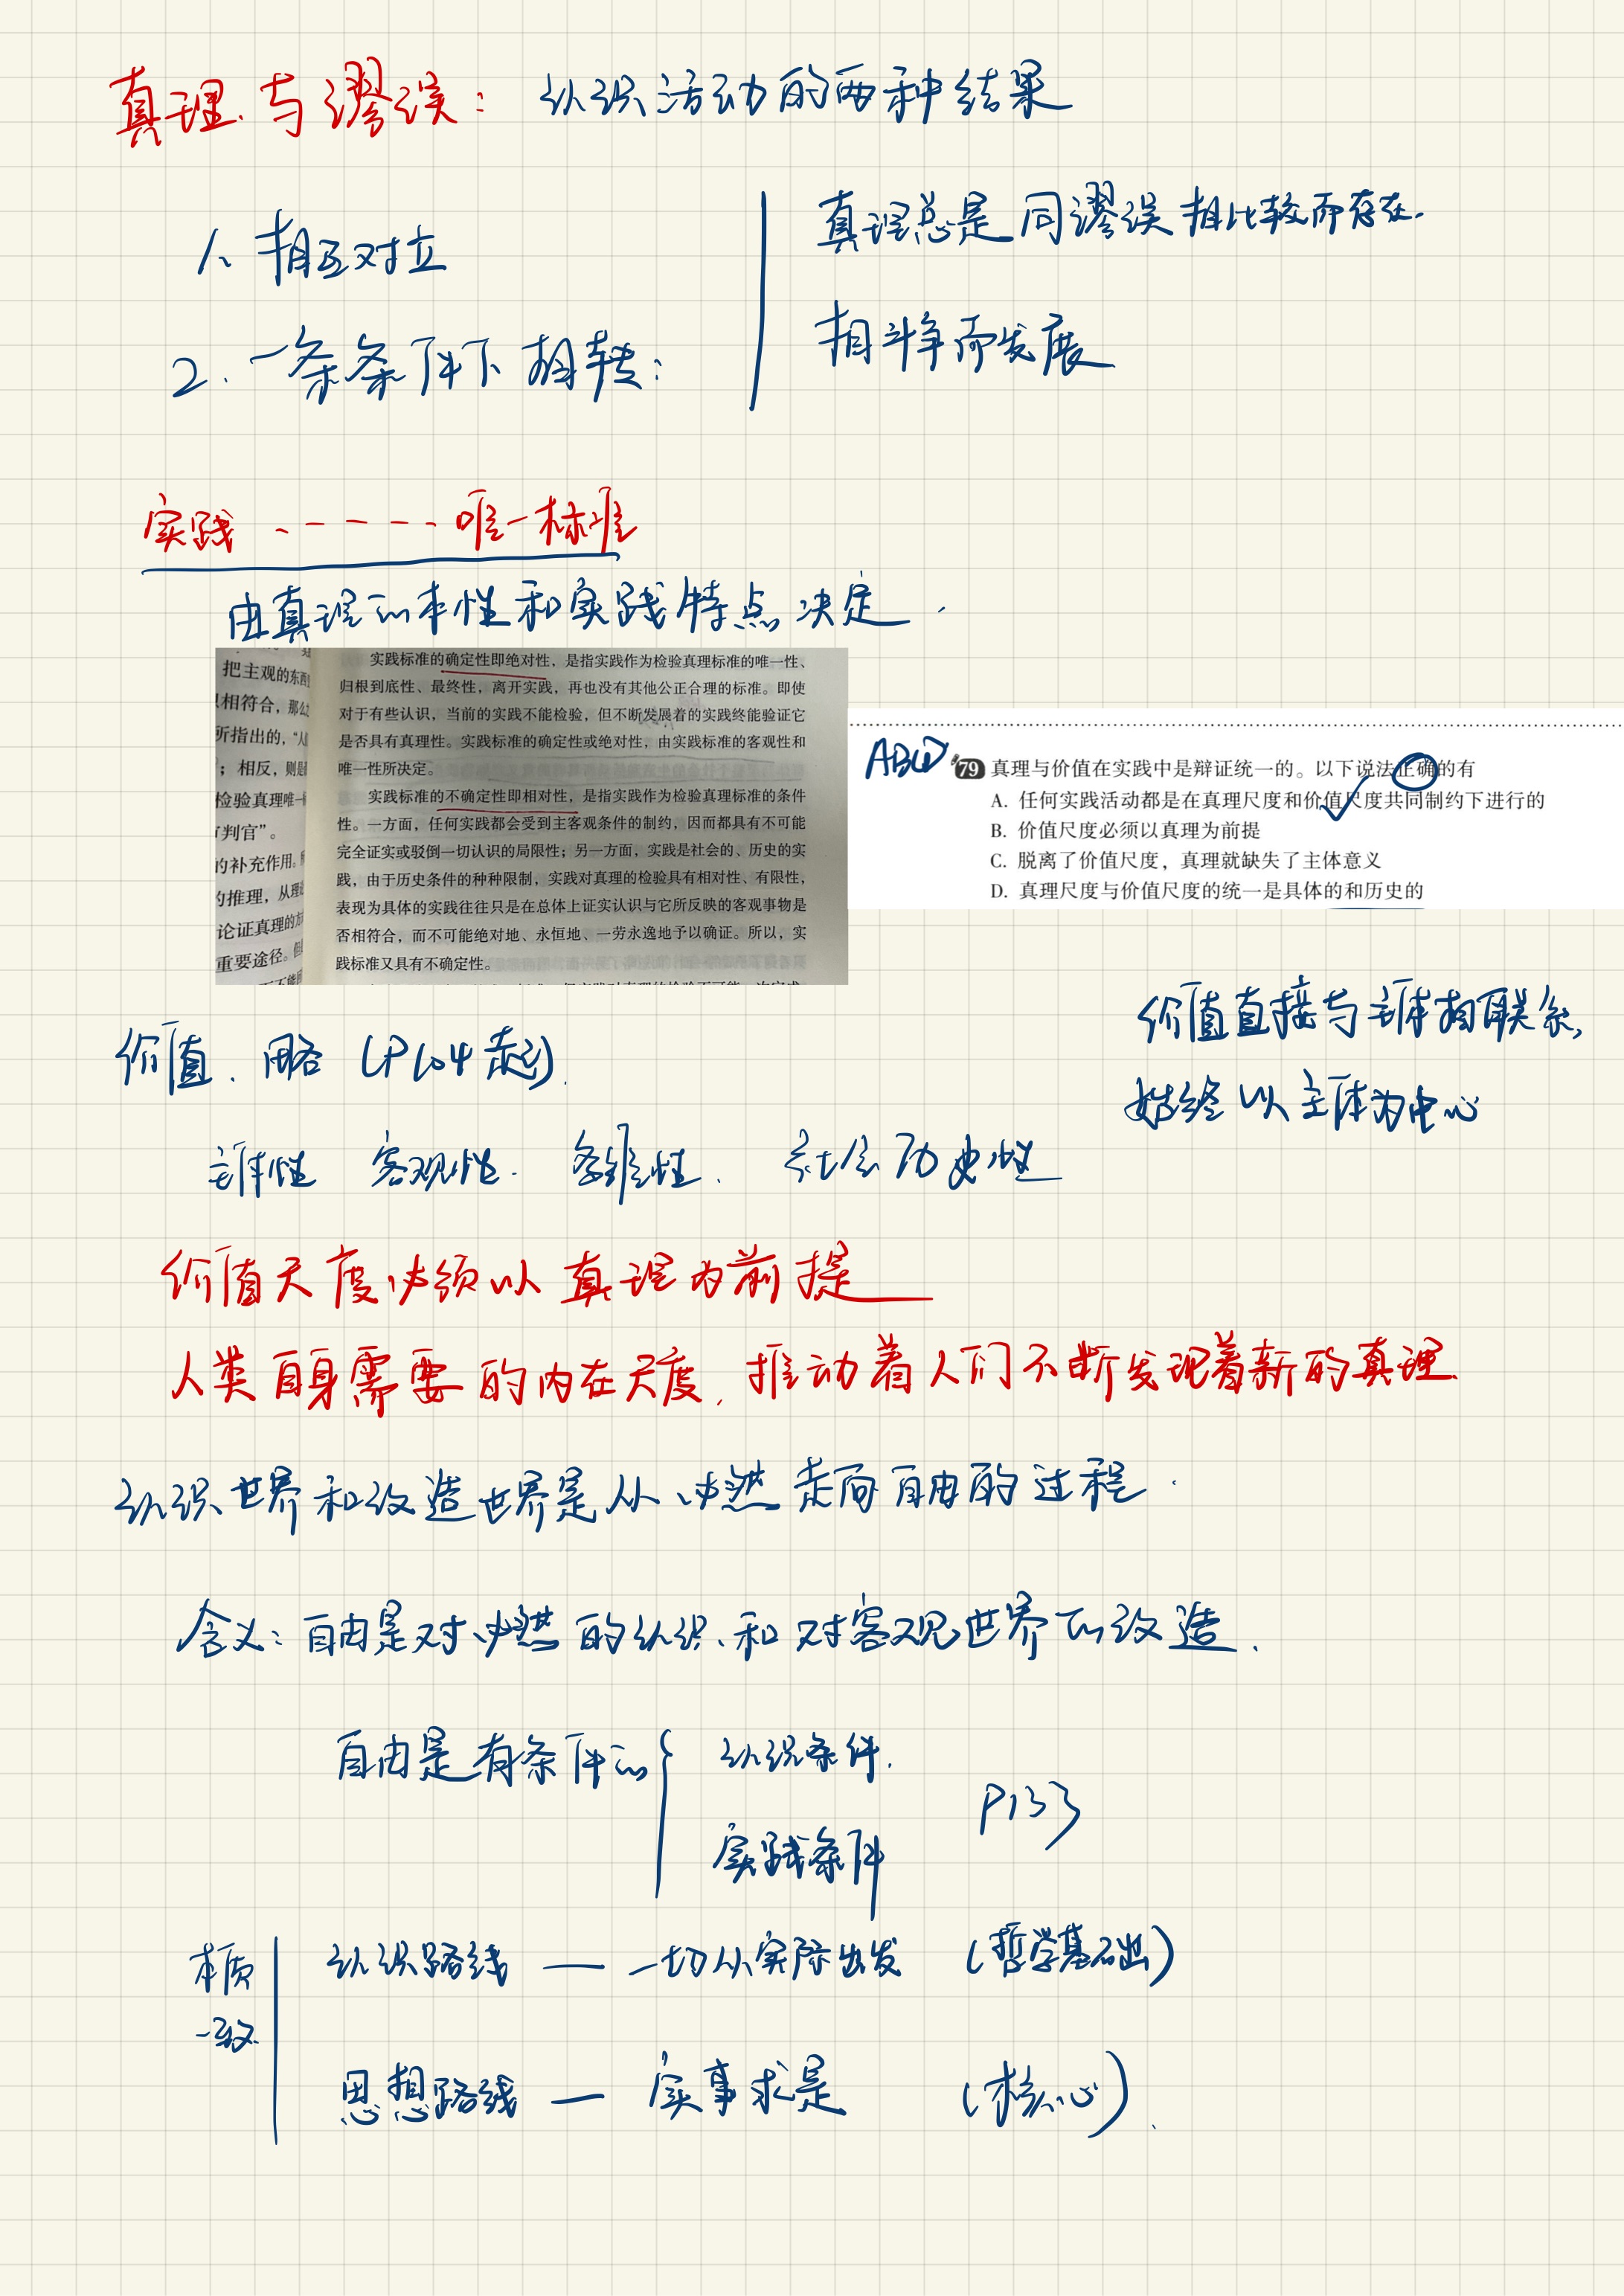 真理与谬误：认识活动的两种结果
1、相互对立
2.一条条件下相转：
真理总是同谬误相比较而存在.
相斗争而发展
实践------唯一标准
由真理的本性和实践特点决定.
把主观的东西
相符合，那么
所指出的，“人
；相反，则是
检验真理唯一
判官”。
的补充作用。
的推理，从理
论证真理的方
重要途径。但
实践标准的确定性即绝对性，是指实践作为检验真理标准的唯一性、
归根到底性、最终性，离开实践，再也没有其他公正合理的标准。即使
对于有些认识，当前的实践不能检验，但不断发展着的实践终能验证它
是否具有真理性。实践标准的确定性或绝对性，由实践标准的客观性和
唯一性所决定。
实践标准的不确定性即相对性，是指实践作为检验真理标准的条件
性。一方面，任何实践都会受到主客观条件的制约，因而都具有不可能
完全证实或驳倒一切认识的局限性；另一方面，实践是社会的、历史的实
践，由于历史条件的种种限制，实践对真理的检验具有相对性、有限性，
表现为具体的实践往往只是在总体上证实认识与它所反映的客观事物是
否相符合，而不可能绝对地、永恒地、一劳永逸地予以确证。所以，实
践标准又具有不确定性。
ABCD
79 真理与价值在实践中是辩证统一的。以下说法正确的有
A. 任何实践活动都是在真理尺度和价值尺度共同制约下进行的
B. 价值尺度必须以真理为前提
C. 脱离了价值尺度，真理就缺失了主体意义
D. 真理尺度与价值尺度的统一是具体的和历史的
价值直接与主体相联系,
始终以主体为中心
价值、略（P104起）.
主体性 客观性. 多维性. 社会历史性
价值尺度必须以真理为前提
人类自身需要的内在尺度，推动着人们不断发现着新的真理.
认识世界和改造世界是从必然走向自由的过程.
含义：自由是对必然的认识、和对客观世界的改造.
自由是有条件的
认识条件.
实践条件
P133
本质
一致
认识路线——一切从实际出发（哲学基础）
思想路线——实事求是（核心）.